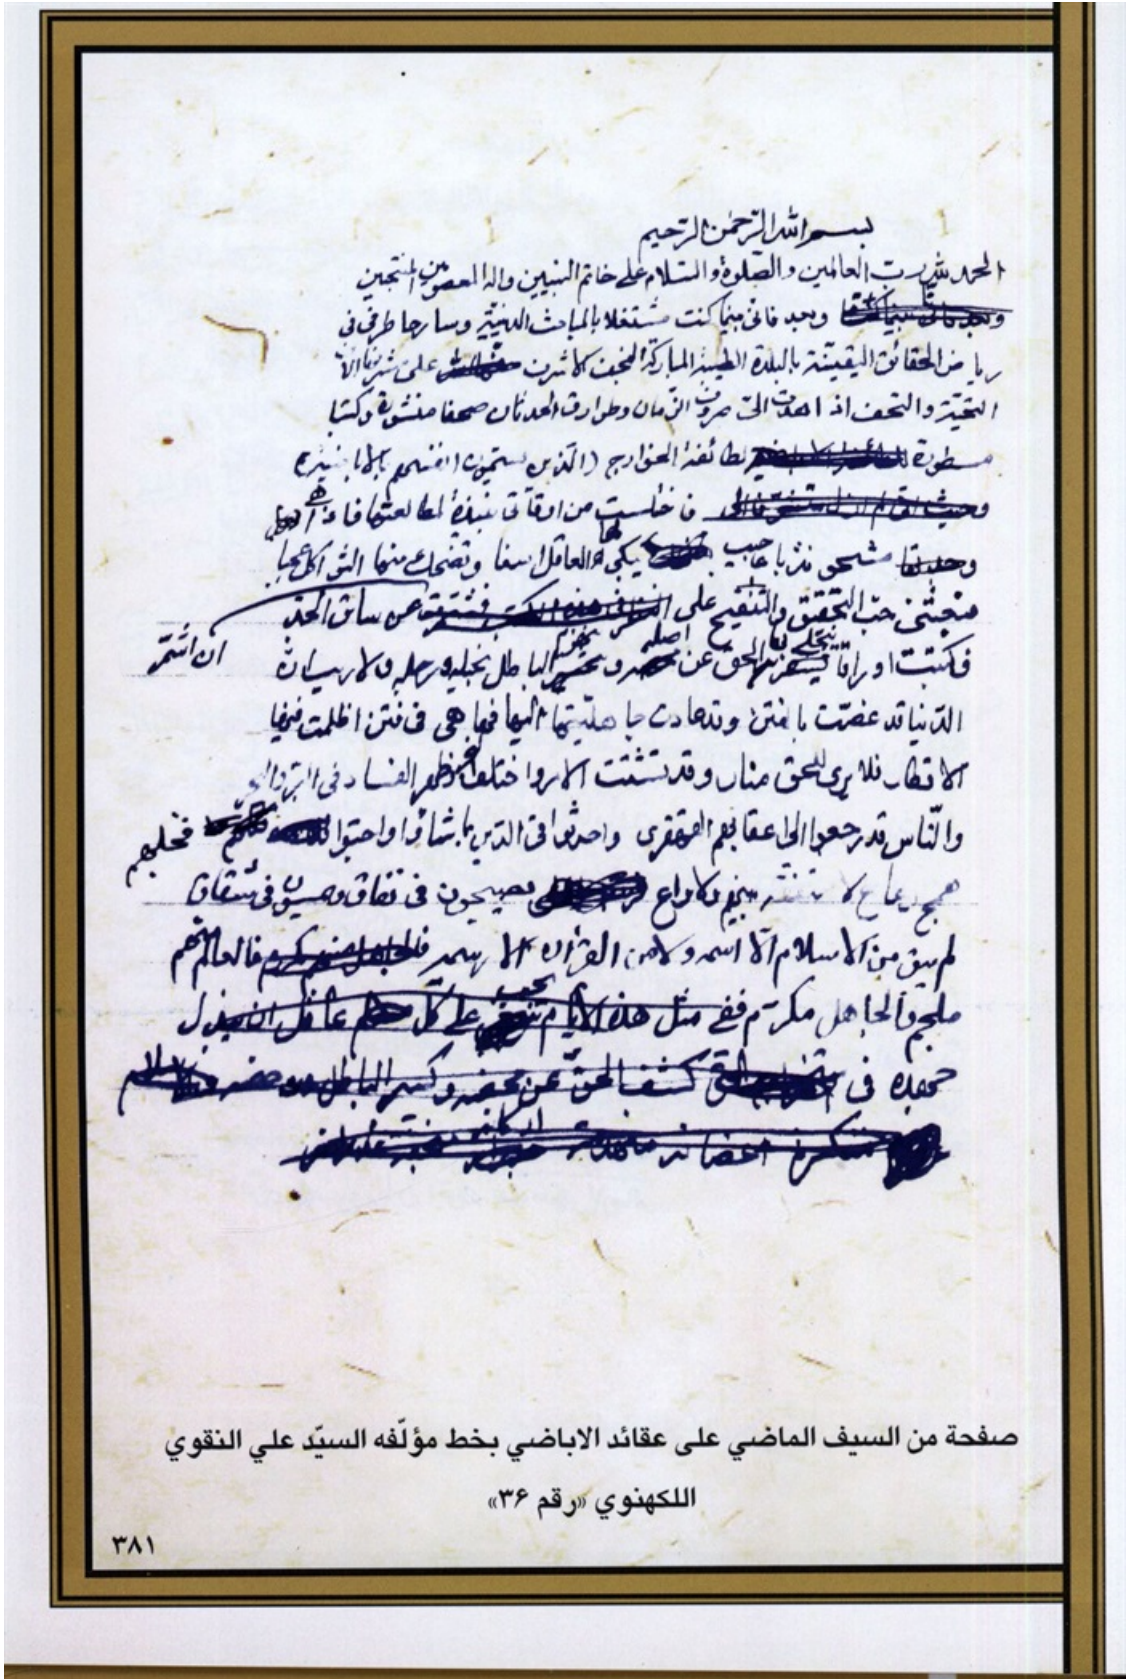 بسم الله الرحمن الرحيم
الحمد لله رب العالمين والصلوة والسلام على خاتم النبيين واله المعصومين المنتجبين
وبعد فانى بينما كنت مشتغلا بالمباحث الدينية وسارحا طرفى فى
رياض الحقائق اليقينية بالبلدة الطيبة المباركة النجف الاشرف على مشرفها الاف
التحية والتحف اذ اهدت الى صروف الزمان وطوارق الحدثان صحفا منشورة وكتبا
مسطورة لطائفة الخوارج (الذين يسمون انفسهم بالاباضية)
فاختلست من اوقاتى نبذة لمطالعتها فاذا
وجدتها مشحونة باعاجيب يبكى لها العاقل اسفا وتضحك منها الثواكل عجبا
فبعثنى حب التحقيق والتنقيح على ان اشمر عن ساق الجد
فكتبت اوراقا الحق عن الباطل بخيله ورجله ولا ريب ان
الدنيا قد غصت بالفتن وقد عادت جاهليتها اليها فها هى فى فتن اظلمت فيها
الاقطار فلا يرى للحق منار وقد تشتت الامر واختلف وظهر الفساد فى البر والبحر
والناس قد رجعوا الى اعقابهم القهقرى واحدثوا فى الدين ما شاؤا واحبوا فجلهم
همج رعاع لا فيصبحون فى نفاق ويمسون فى شقاق
لم يبق من الاسلام الا اسمه ولا من القرأن الا رسمه فالعالم منهم
ملجم والجاهل مكرم ففى مثل هذه الايام يجب على كل عاقل ان يبذل
جهده فى كشف الحق عن محضه وكسر الباطل
صفحة من السيف الماضي على عقائد الاباضي بخط مؤلّفه السيّد علي النقوي
اللكهنوي «رقم ۳۶»
۳۸۱